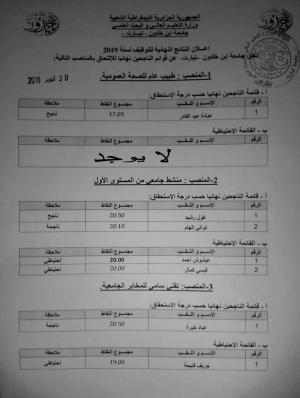 الجمهورية الجزائرية الديمقراطية الشعبية
وزارة التعليم العالي و البحث العلمي
جامعة ابن خلدون - تيارت -
إعلان النتائج النهائية للتوظيف لسنة 2019
تعلن جامعة ابن خلدون - تيارت، عن قوائم الناجحين نهائيا للإلتحاق بالمناصب التالية:
30 أكتوبر 2019
1-المنصب : طبيب عام للصحة العمومية.
أ - قائمة الناجحين نهائيا حسب درجة الاستحقاق:
الرقم الإســم و اللــقــب مجمـوع النقاط ملاحظة
1 عبادة عبد القادر 17.05 ناجح
ب - القائمة الإحتياطية
الرقم الإســم و اللــقــب مجمـوع النقاط ملاحظة
لا يوجد
2-المنصب : منشط جامعي من المستوى الأول
أ - قائمة الناجحين نهائيا حسب درجة الاستحقاق:
الرقم الإســم و اللــقــب مجمـوع النقاط ملاحظة
1 غول رشيد 20.50 ناجح
2 نواتي الهام 20.10 ناجحة
ب - القائمة الإحتياطية
الرقم الإســم و اللــقــب مجمـوع النقاط ملاحظة
1 عيشوش أحمد 20.00 إحتياطي
2 قيسي كمال 20.00 إحتياطي
3-المنصب: تقني سامي للمخابر الجامعية.
أ - قائمة الناجحين نهائيا حسب درجة الاستحقاق:
الرقم الإســم و اللــقــب مجمـوع النقاط ملاحظة
1 عباد خيرة 20.50 ناجحة
ب - القائمة الإحتياطية
الرقم الإســم و اللــقــب مجمـوع النقاط ملاحظة
1 حريف فتيحة 19.00 إحتياطي